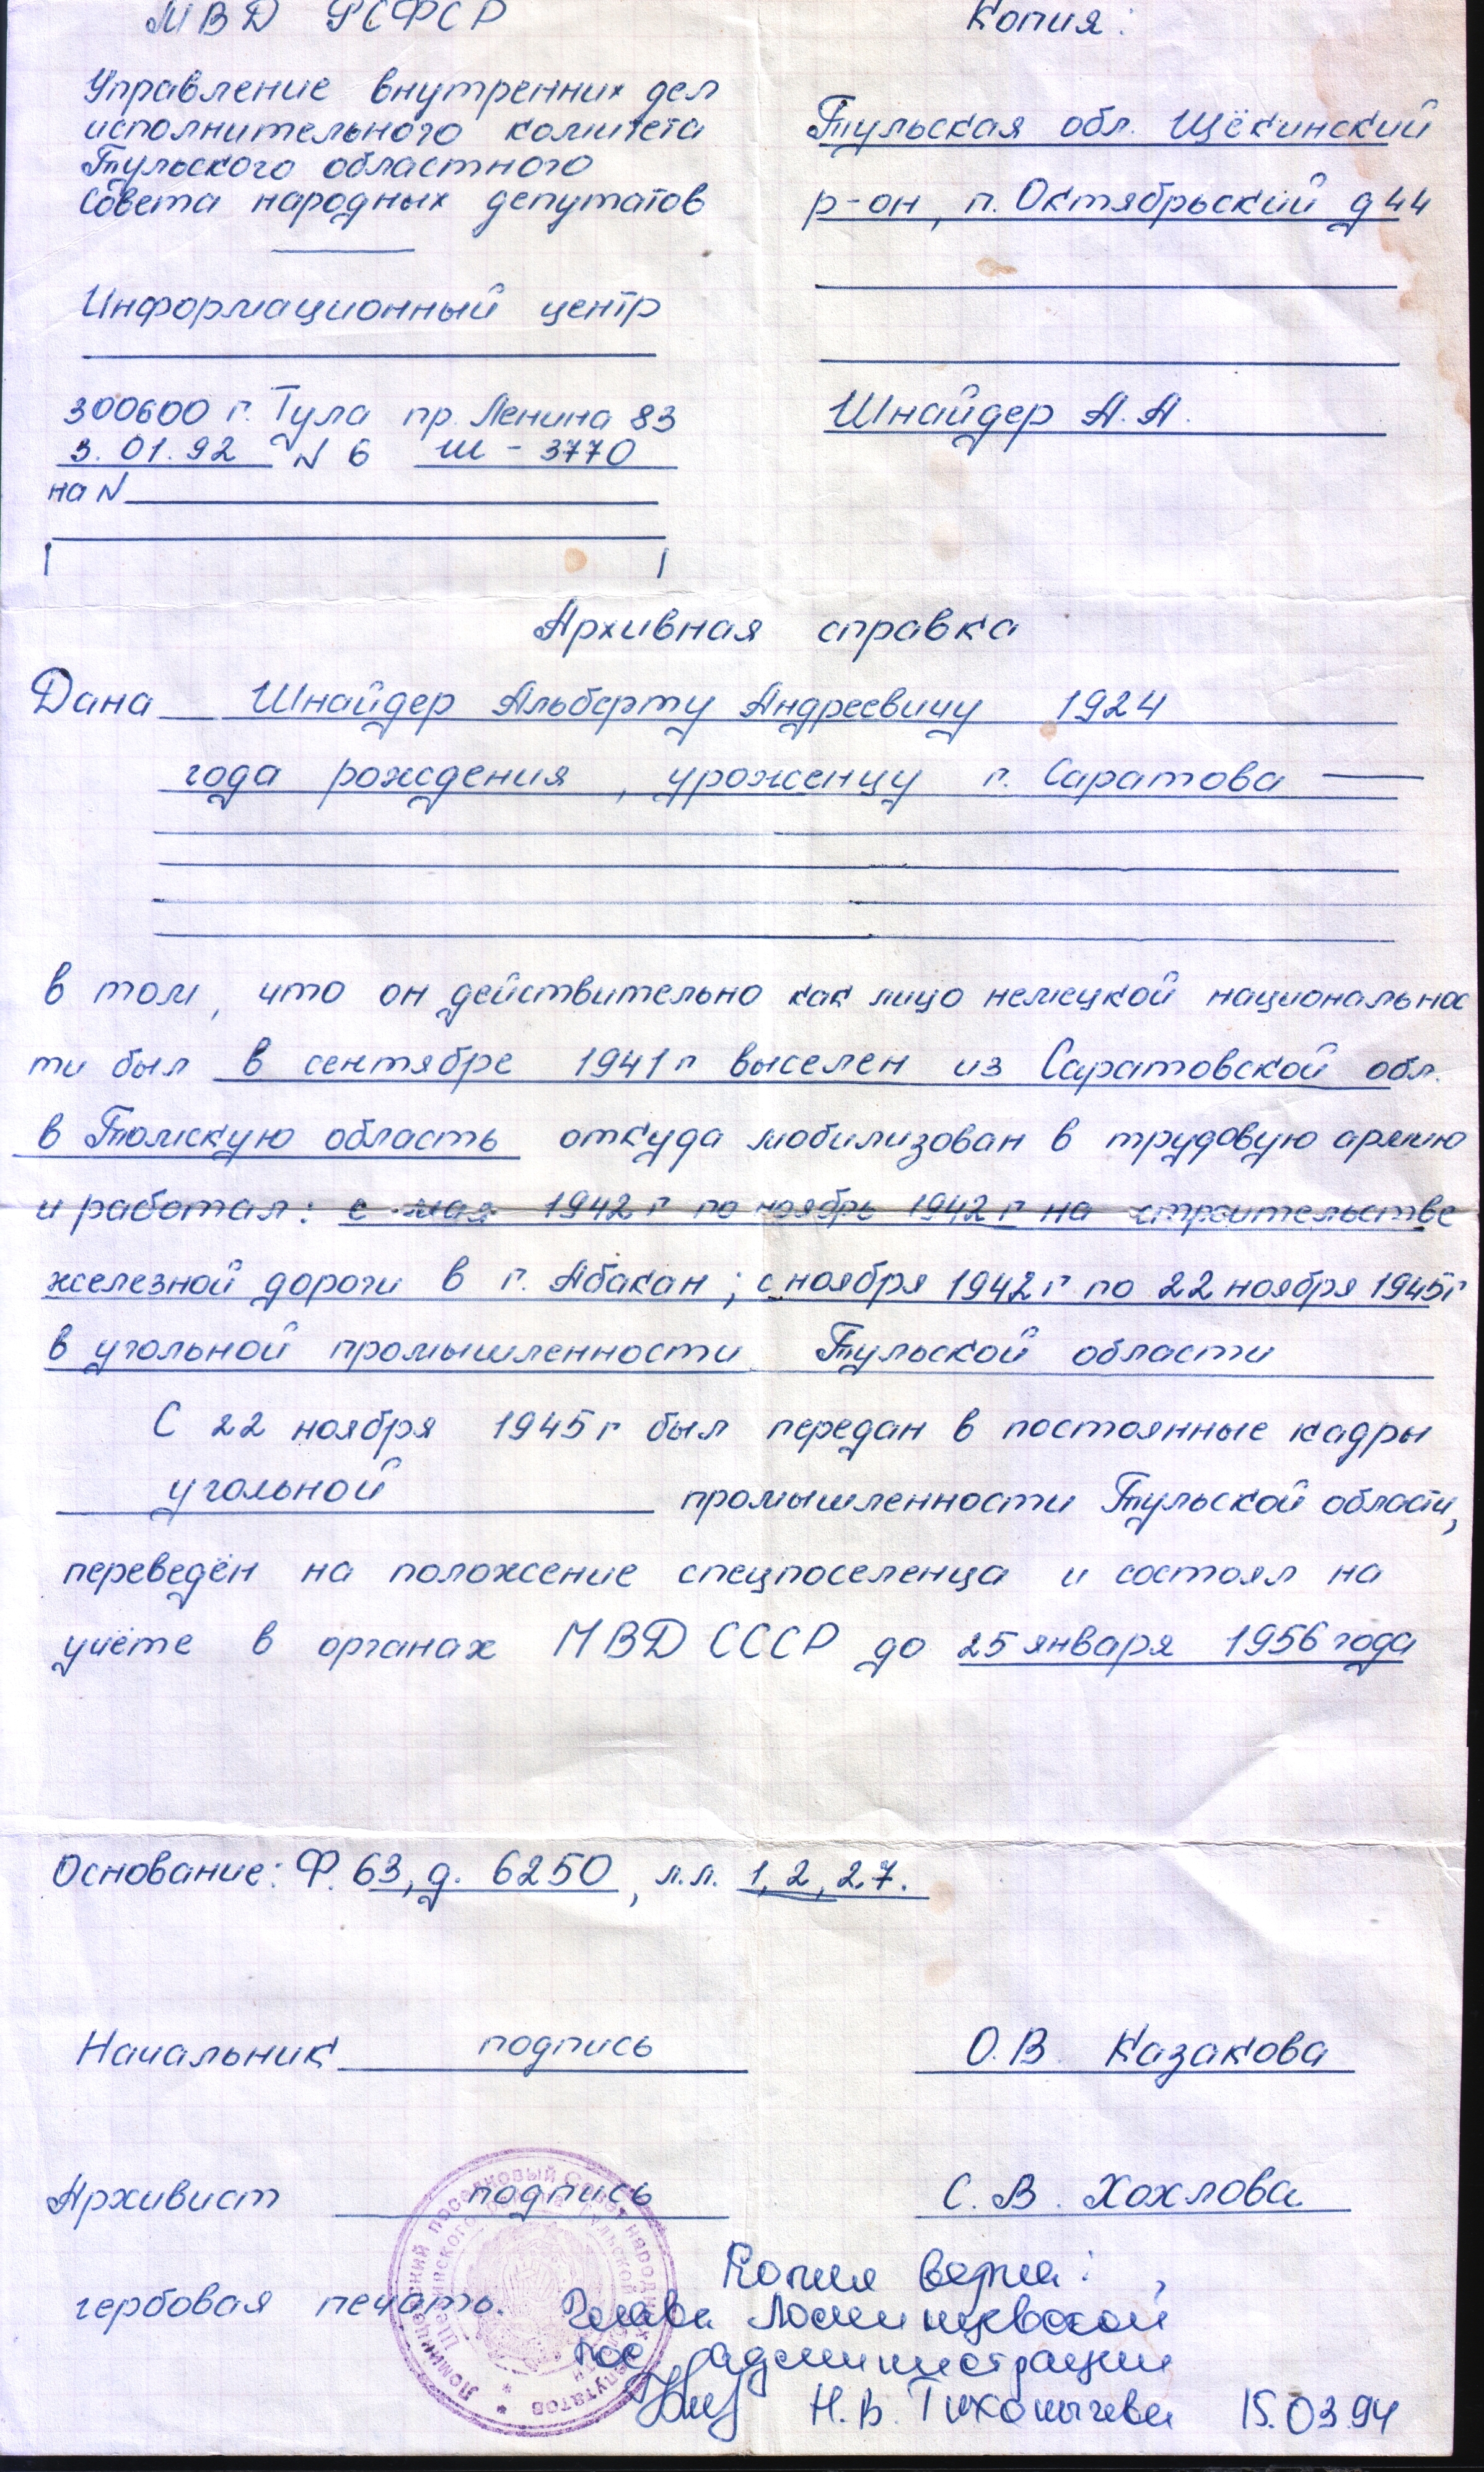 МВД РСФСР
Управление внутренних дел
исполнительного комитета
Тульского областного
Совета народных депутатов
Информационный центр
300600 г. Тула пр. Ленина 83
3.01.92 N 6 Ш - 3770
на N
Копия:
Тульская обл. Щёкинский
р-он, п. Октябрьский д 44
Шнайдер А.А.
Архивная справка
Дана Шнайдер Альберту Андреевичу 1924
года рождения, уроженцу г. Саратова
в том, что он действительно как лицо немецкой национальнос
ти был в сентябре 1941 г выселен из Саратовской обл.
в Томскую область откуда мобилизован в трудовую армию
и работал: с мая 1942 г по ноябрь 1942 г на строительстве
железной дороги в г. Абакан; с ноября 1942 г по 22 ноября 1945 г
в угольной промышленности Тульской области
С 22 ноября 1945 г был передан в постоянные кадры
угольной промышленности Тульской области,
переведён на положение спецпоселенца и состоял на
учёте в органах МВД СССР до 25 января 1956 года
Основание: Ф. 63, д. 6250, л.л. 1, 2, 27.
Начальник подпись О.В. Казакова
Архивист подпись С.В. Хохлова
гербовая печать.
Копия верна:
Глава Ломинцевской
пос администрации
Н.В. Тихомычева 15.03.94